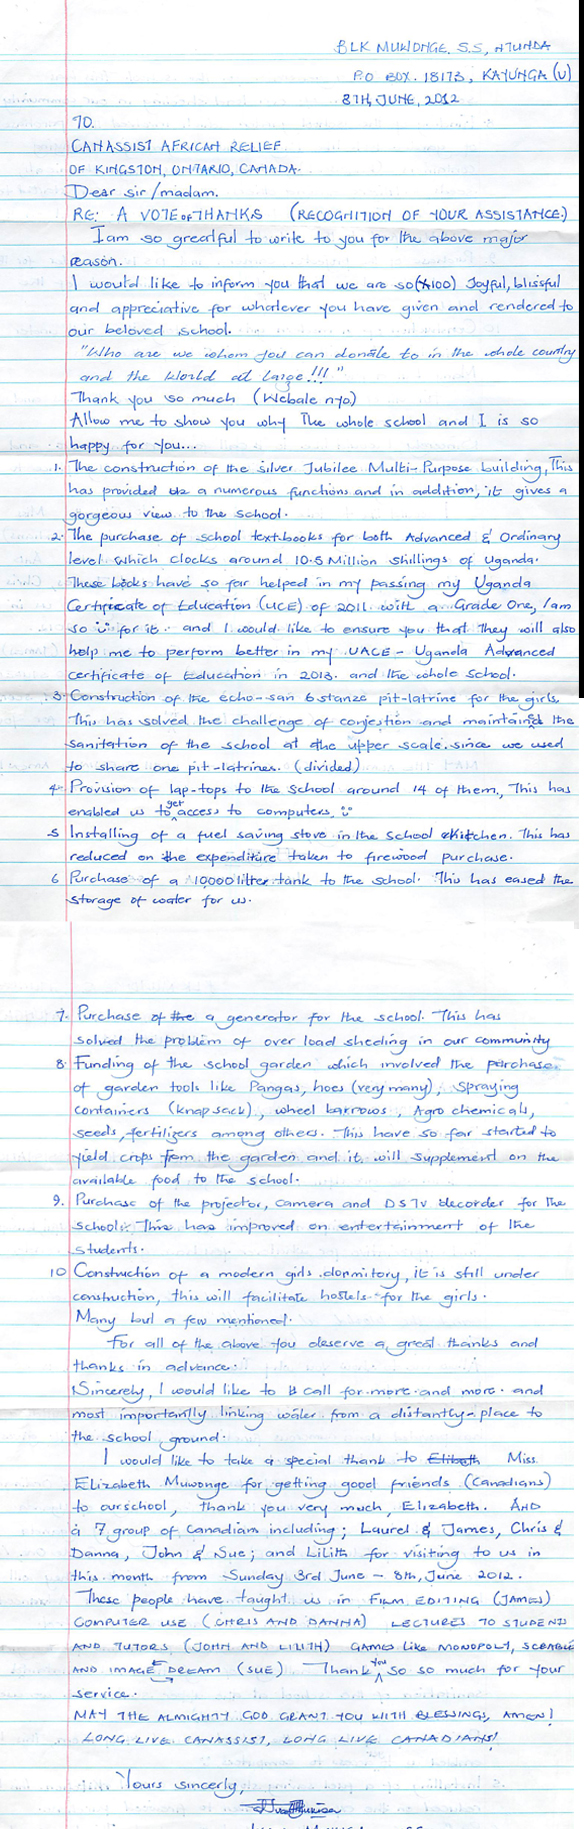 BLK MUWONGE. S.S, NTUNDA
P.O BOX. 18173, KAYUNGA (U)
8TH, JUNE, 2012
TO.
CANASSIST AFRICAN RELIEF
OF KINGSTON, ONTARIO, CANADA.
Dear sir/madam.
RE: A VOTE of THANKS (RECOGNITION OF YOUR ASSISTANCE.)
I am so greatful to write to you for the above major
reason.
I would like to inform you that we are so (×100) Joyful, blissful
and appreciative for whatever you have given and rendered to
our beloved school.
"Who are we whom you can donate to in the whole country
and the World at large!!!"
Thank you so much (Webale nyo.)
Allow me to show you why The whole school and I is so
happy for you...
1. The construction of the silver Jubilee Multi-Purpose building, This
has provided a numerous functions and in addition, it gives a
gorgeous view to the School.
2. The purchase of school text-books for both Advanced & Ordinary
level which clocks around 10.5 Million shillings of Uganda.
These books have so far helped in my passing my Uganda
Certificate of Education (UCE) of 2011 with a Grade One, I am
so for it. and I would like to ensure you that They will also
help me to perform better in my UACE - Uganda Advanced
certificate of Education in 2013. and the whole school.
3. Construction of the echo-san 6 stanze pit-latrine for the girls,
This has solved the challenge of conjestion and maintained the
sanitation of the school at the upper scale. since we used
to share one pit-latrines. (divided)
4. Provision of lap-tops to the school around 14 of them, This has
enabled us to get access to computers,
5 Installing of a fuel saving stove in the School kitchen. This has
reduced on the expenditure taken to firewood purchase.
6 Purchase of a 10000 litter tank to the school. This has eased the
storage of water for us.
7. Purchase of the a generator for the school. This has
solved the problem of over load sheding in our community
8. Funding of the school garden which involved the purchase
of garden tools like Pangas, hoes (very many), spraying
containers (knap sack), wheel barrows, Agro chemicals,
seeds, fertilizers among others. This have so far started to
yield crops from the garden and it will supplement on the
available food to the school.
9. Purchase of the projector, camera and DSTV decorder for the
school. This has improved on entertainment of the
students.
10 Construction of a modern girls dormitory, it is still under
construction, this will facilitate hostels for the girls.
Many but a few mentioned.
For all of the above you deserve a great thanks and
thanks in advance.
Sincerely, I would like to call for more and more and
most importantly linking water from a distantly-place to
the school ground.
I would like to take a special thank to Miss
Elizabeth Muwonge for getting good friends (Canadians)
to our school, thank you very much, Elizabeth. AND
a 7 group of Canadian including; Laurel & James, Chris &
Danna, John & Sue; and Lilith for visiting to us in
this month from Sunday 3rd June - 8th, June 2012.
These people have taught us in FILM EDITING (JAMES)
COMPUTER USE (CHRIS AND DANNA) LECTURES TO STUDENTS
AND TUTORS (JOHN AND LILITH) GAMES like MONOPOLY, SCRABLE
AND IMAGE DREAM (SUE) Thank you so so much for your
service.
MAY THE ALMIGHTY GOD GRANT YOU WITH BLESSINGS, AMEN!
LONG LIVE CANASSIST, LONG LIVE CANADIANS!
Yours sincerely,